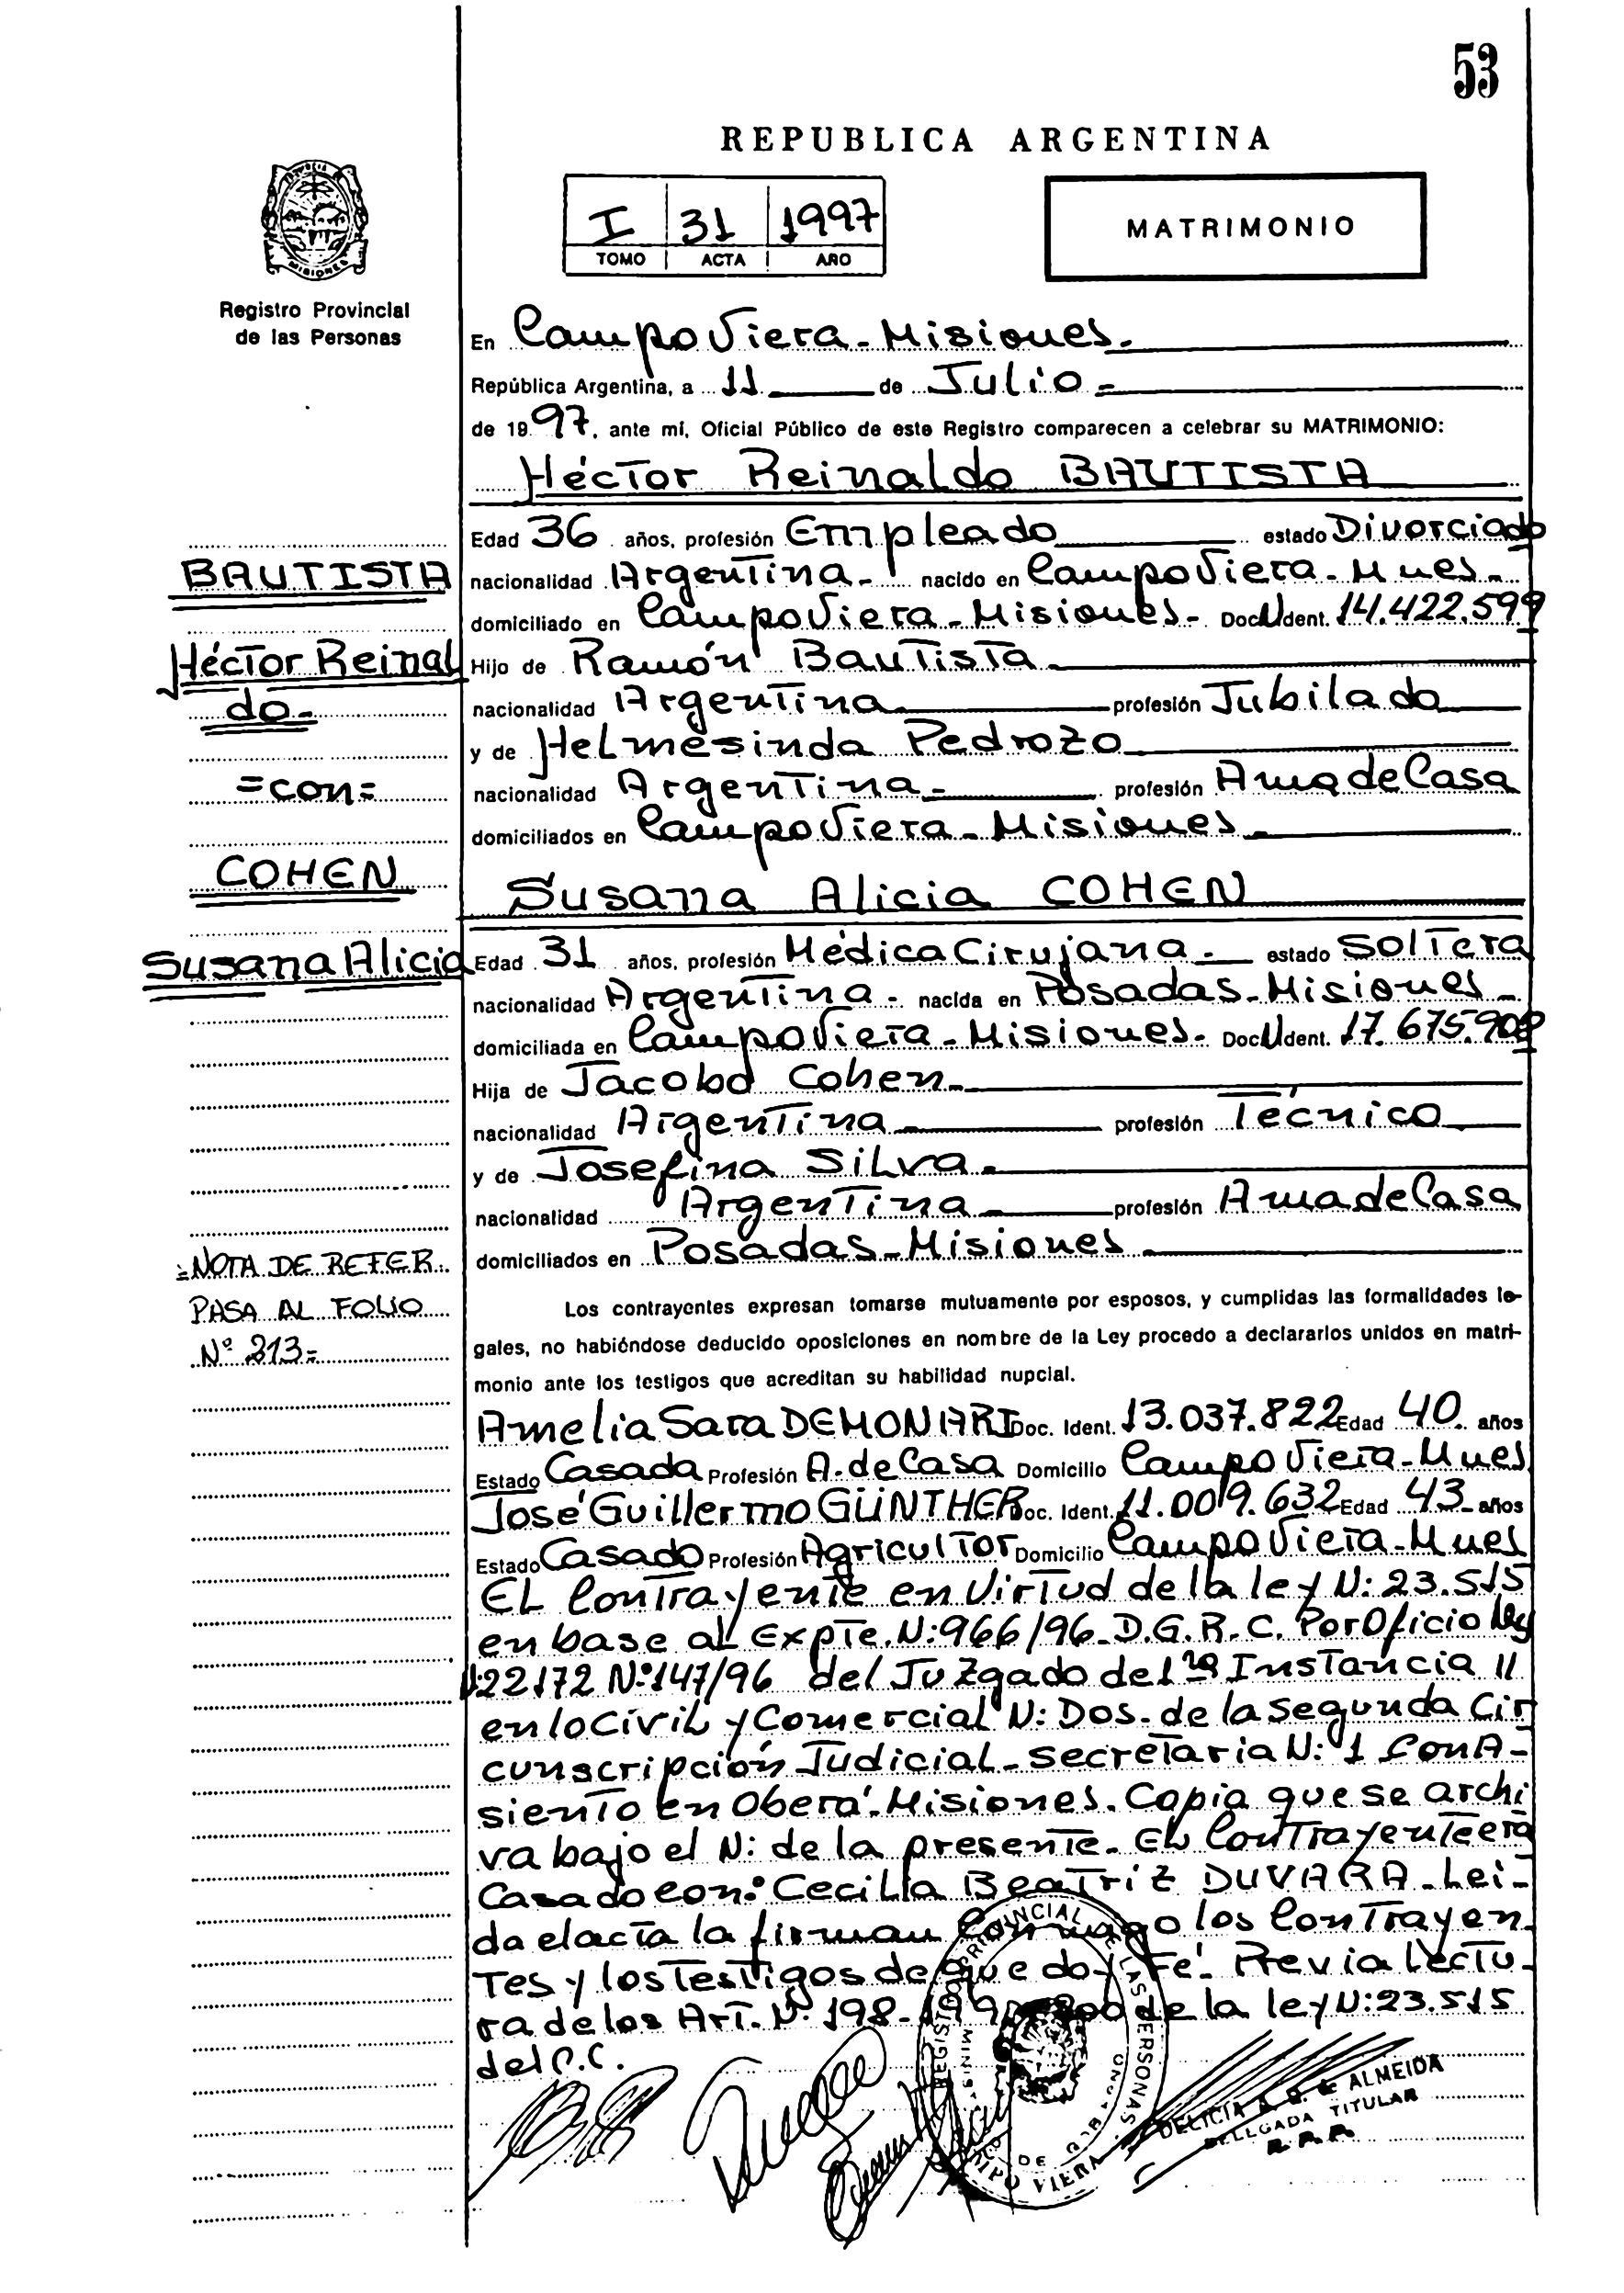 53
REPUBLICA ARGENTINA
I 31 1997
TOMO ACTA AÑO
MATRIMONIO
MISIONES
Registro Provincial
de las Personas
BAUTISTA
Héctor Reinal
do-
=con=
COHEN
Susana Alicia
=NOTA DE REFER.
PASA AL FOLIO
Nº 313=
En Campo Viera-Misiones.
República Argentina, a 11 de Julio-
de 1997, ante mí, Oficial Público de este Registro comparecen a celebrar su MATRIMONIO:
Héctor Reinaldo BAUTISTA
Edad 36 años, profesión Empleado estado Divorciado
nacionalidad Argentina- nacido en Campo Viera-Mnes-
domiciliado en Campo Viera-Misiones- Doc. Ident. 14.422.599
Hijo de Ramón Bautista
nacionalidad Argentina profesión Jubilado
y de Helmesinda Pedrozo
nacionalidad Argentina- profesión Ama de Casa
domiciliados en Campo Viera-Misiones
Susana Alicia COHEN
Edad 31 años, profesión Médica Cirujana- estado Soltera
nacionalidad Argentina- nacida en Posadas-Misiones-
domiciliada en Campo Viera-Misiones- Doc. Ident.
Hija de Jacobo Cohen
nacionalidad Argentina profesión Técnico
y de Josefina Silva
nacionalidad Argentina profesión Ama de Casa
domiciliados en Posadas-Misiones
Los contrayentes expresan tomarse mutuamente por esposos, y cumplidas las formalidades le-
gales, no habiéndose deducido oposiciones en nombre de la Ley procedo a declararlos unidos en matri-
monio ante los testigos que acreditan su habilidad nupcial.
Amelia Sara DEMONARI Doc. Ident. 13.037.822 Edad 40 años
Estado Casada Profesión A. de Casa Domicilio Campo Viera-Mnes
José Guillermo GÜNTHER Doc. Ident. 11.009.632 Edad 43 años
Estado Casado Profesión Agricultor Domicilio Campo Viera-Mnes
EL Contrayente en Virtud de la ley N: 23.515
en base al Expte. N: 966/96-D.G.R.C. Por Oficio ley
N:22172 Nº147/96 del Juzgado de 1ra Instancia //
en lo Civil y Comercial N: Dos-de la segunda Cir
cunscripción Judicial-secretaria N: 1 Con A-
siento en Oberá-Misiones. Copia que se archi
va bajo el N: de la presente. El Contrayente era
Casado con: Cecilia Beatriz DUVARA-Lei-
da el acta la firman Conmigo los Contrayen-
tes y los testigos de que doy Fé. Previa Lectu-
ra de los Art. N. 198-199 200 de la ley N: 23.515
del C.C.
REGISTRO PROVINCIAL DE LAS PERSONAS
CAMPO VIERA
DELICIA ALMEIDA
DELEGADA TITULAR